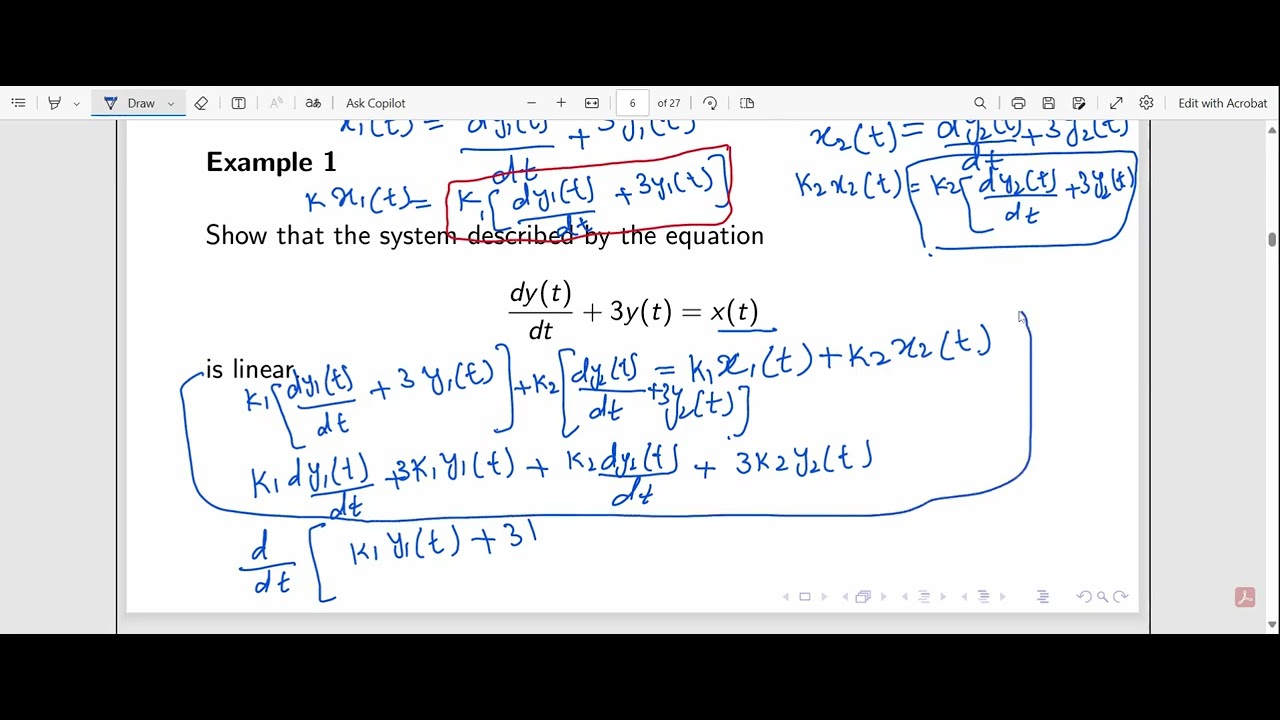 Draw
Ask Copilot
6 of 27
Edit with Acrobat
x₁(t) = dy₁(t)/dt + 3y₁(t)
x₂(t) = dy₂(t)/dt + 3y₂(t)
Example 1
K x₁(t) = K₁[dy₁(t)/dt + 3y₁(t)]
K₂x₂(t) = K₂[dy₂(t)/dt + 3y₂(t)
Show that the system described by the equation
dy(t)/dt + 3y(t) = x(t)
is linear
K₁[dy₁(t)/dt + 3y₁(t)] + K₂[dy₂(t)/dt + 3y₂(t)] = K₁x₁(t) + K₂x₂(t)
K₁dy₁(t)/dt + 3K₁y₁(t) + K₂dy₂(t)/dt + 3K₂y₂(t)
d/dt [K₁y₁(t) + 3